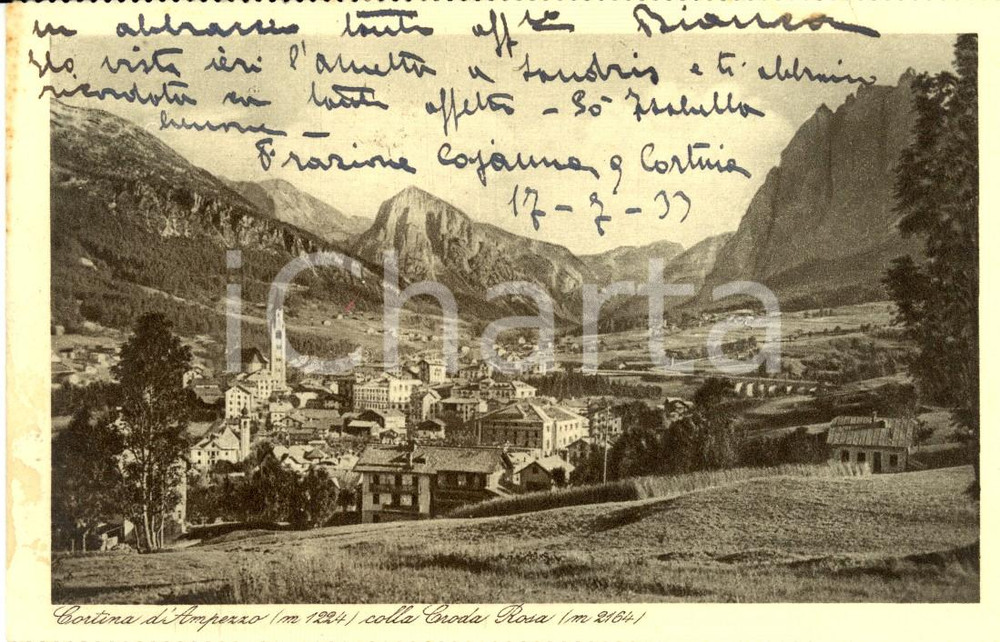 un abbraccio tanto aff.to Bianca
Ho vista ieri l'Amelia a Landris e ti abbiamo
ricordata con tanto affetto -
Frazione Cojanna, 9 Cortina
17-7-33
iCharta
Cortina d'Ampezzo (m 1224) colla Croda Rosa (m 2164)